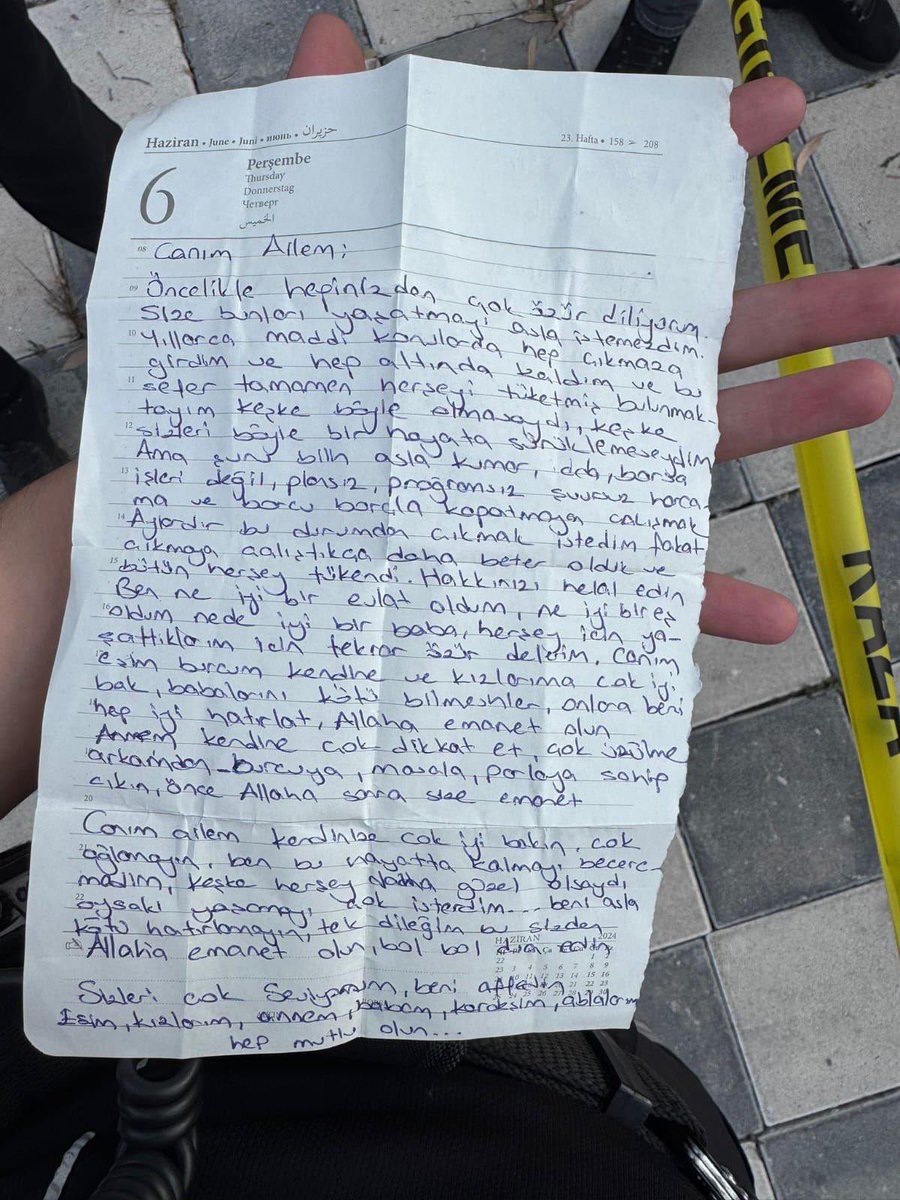 Haziran • June • Juni • июнь • حزيران
23. Hafta • 158 > 208
6
Perşembe
Thursday
Donnerstag
Четверг
الخميس
08 Canım Ailem;
09 Öncelikle hepinizden çok özür diliyorum.
Size bunları yaşatmayı asla istemezdim.
10 Yıllarca maddi konularda hep çıkmaza
girdim ve hep altında kaldım ve bu
11 sefer tamamen herşeyi tüketmiş bulunmak-
tayım keşke böyle olmasaydı, keşke
12 sizleri böyle bir hayata sürüklemeseydim
Ama şunu bilin asla kumar, iddia, borsa
13 işleri değil, plansız, programsız şuursuz harca-
ma ve borcu borçla kapatmaya çalışmak
14 Aylardır bu durumdan çıkmak istedim fakat
çıkmaya çalıştıkça daha beter olduk ve
15 bütün herşey tükendi. Hakkınızı helal edin
Ben ne iyi bir evlat oldum, ne iyi bir eş
16 oldum nede iyi bir baba, herşey için ya-
şattıklarım için tekrar özür dilerim. Canım
eşim burcum kendine ve kızlarıma çok iyi
bak, babalarını kötü bilmesinler, onlara beni
hep iyi hatırlat, Allaha emanet olun
Annem kendine çok dikkat et, çok üzülme
arkamdan burcuya, masala, parlaya sahip
çıkın, önce Allaha sonra size emanet
20
Canım ailem kendinize çok iyi bakın, çok
21 ağlamayın, ben bu hayatta kalmayı becere-
madim, keşke herşey daha güzel olsaydı
22 oysaki yaşamayı çok isterdim... beni asla
kötü hatırlamayın, tek dileğim bu sizden
Allaha emanet olun, bol bol dua edin
HAZİRAN 2024
Sizleri çok seviyorum, beni affedin
Eşim, kızlarım, annem, babam, kardeşim, ablalarım
hep mutlu olun...
KAZA